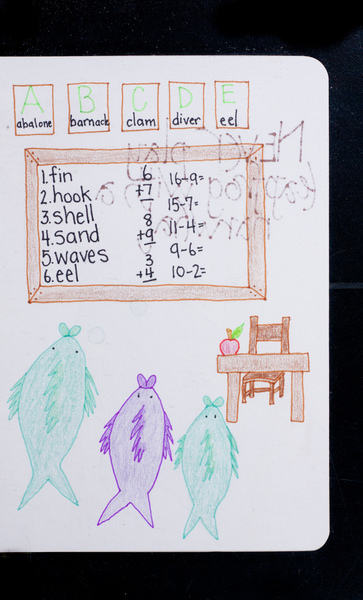 A
abalone
B
barnack
C
clam
D
diver
E
eel
Never play
leapfrog
1.fin
2.hook
3.shell
4.Sand
5.waves
6.eel
6
+7
8
+9
3
+4
16-9=
15-7=
11-4=
9-6=
10-2=